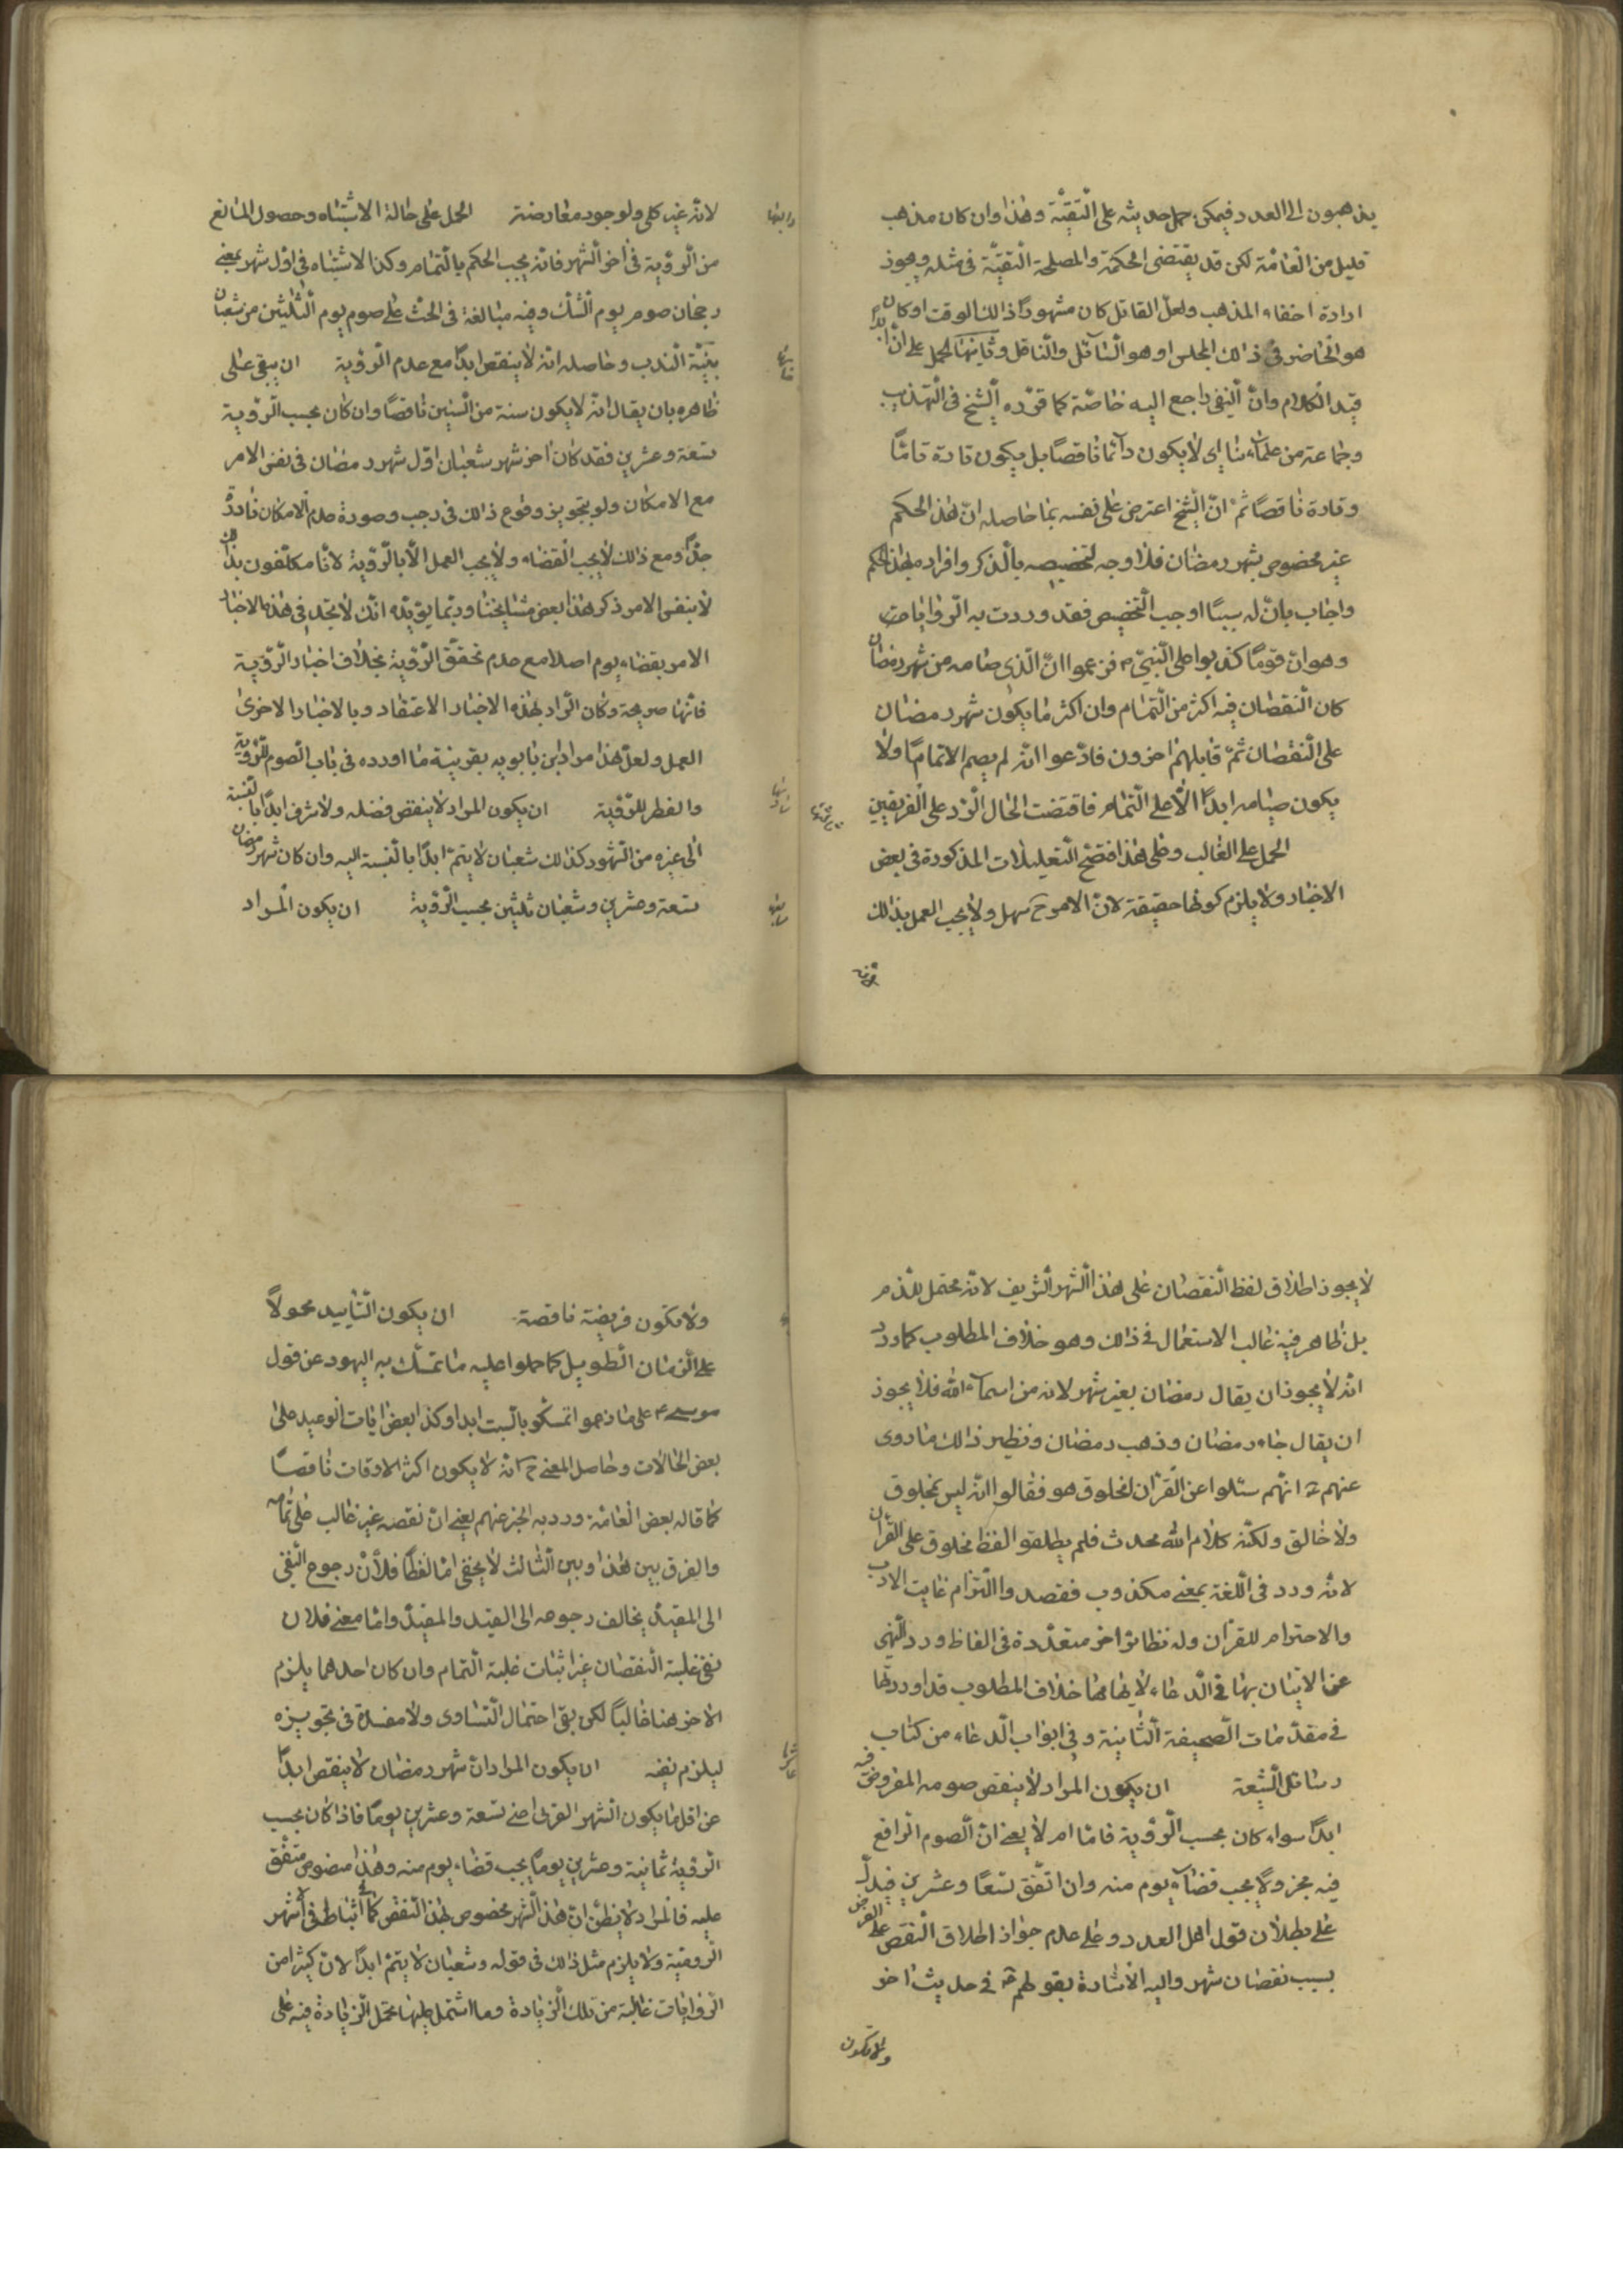 يذهبون الى العدد فيمكن حمل حديثه على التقيّة وهذا وان كان مذهب
قليل من العامّة لكن قد يقتضى الحكمة والمصلحة التقيّة فى مثله ويجوز
ارادة اخفاء المذهب ولعلّ القائل كان مشهورًا ذالك الوقت او كان
هو الحاضر فى ذالك المجلس او هو السّائل والنّاقل وثانيها الحمل على انّ ابدًا
قيد الكلام وانّ النّفى راجع اليه خاصّة كما قرّره الشّيخ فى التهذيب
وجماعة من علمائنا اى لا يكون دائمًا ناقصًا بل يكون تارة تامًّا
وتارة ناقصًا ثمّ انّ الشّيخ اعترض على نفسه بما حاصله انّ هذا الحكم
غير مخصوص بشهر رمضان فلا وجه لتخصيصه بالذّكر وافراده بهذا الحكم
واجاب بانّ له سببًا اوجب التّخصيص فقد وردت به الرّوايات
وهو انّ قومًا كذبوا على النّبىّ ص فزعموا انّ الّذى صامه من شهر رمضان
كان النّقصان فيه اكثر من التّمام وان اكثر ما يكون شهر رمضان
على النّقصان ثمّ قابلهم اخرون فادّعوا انّه لم يصم الا تمامًا ولا
يكون صيامه ابدًا الّا على التّمام فاقتضت الحال الرّد على الفريقين
ثالثها
الحمل على الغالب وعلى هذا افتضح التّعليلات المذكورة فى بعض
الاخبار ولا يلزم كونها حقيقة لانّ الامر ح سهل ولا يجب العمل بذالك
لانّه
لانّه غير كلى ولوجود معارضته الحمل على حالة الاشتباه وحصول المانع
رابعها
من الرّوية فى اخر الشّهر فانّه يجب الحكم بالتّمام وكذا الاشتباه فى اوّل شهر بمعنى
رجحان صوم يوم الشّك وفيه مبالغة فى الحثّ على صوم يوم الثّلثين من شعبان
بنيّة النّدب وحاصله انّه لا ينقص ابدًا مع عدم الرّوية ان يبقى على
خامسها
ظاهره بان يقال انّه لا يكون سنة من السّنين ناقصًا وان كان بحسب الرّوية
تسعة وعشرين فقد كان اخر شهر شعبان اوّل شهر رمضان فى نفس الامر
مع الامكان ولو بتجويز وقوع ذالك فى رجب وصورة عدم الامكان نادرة
جدًّا ومع ذالك لا يجب القضاء ولا يجب العمل الّا بالرّوية لانّا مكلّفون بذالك
لا بنفس الامر ذكر هذا بعض مشايخنا وربما يؤيّده انّك لا تجد فى هذه الاخبار
الامر بقضاء يوم اصلا مع عدم تحقّق الرّوية بخلاف اخبار الرّوية
فانّها صريحة وكان المراد بهذه الاخبار الاعتقاد وبالاخبار الاخرى
العمل ولعلّ هذا مراد ابن بابويه بقرينة ما اورده فى باب الصّوم للرّوية
والفطر للرّوية ان يكون المراد لا ينقص فضله ولا شرفه ابدًا بالنّسبة
سادسها
الى غيره من الشّهور كذالك شعبان لا يتمّ ابدًا بالنّسبة اليه وان كان شهر رمضان
تسعة وعشرين وشعبان ثلثين بحسب الرّوية ان يكون المراد
سابعها
لا يجوز اطلاق لفظ النّقصان على هذا الشّهر الشّريف لانّه محتمل للذّم
بل ظاهر فيه غالب الاستعمال فى ذالك وهو خلاف المطلوب كما ورد
انّه لا يجوز ان يقال رمضان بغير شهر لانه من اسماء الله فلا يجوز
ان يقال جاء رمضان وذهب رمضان ونظير ذالك ما روى
عنهم ع انّهم سئلوا عن القران امخلوق هو فقالوا انّه ليس بمخلوق
ولا خالق ولكنّه كلام الله محدث فلم يطلقوا لفظ مخلوق على القران
لانّه ورد فى اللّغة بمعنى مكذوب فقصدوا التزام غايت الادب
والاحترام للقران وله نظائر اخر متعدّدة فى الفاظ ورد النّهى
عن الاتيان بها فى الدّعاء لايهامها خلاف المطلوب قد اوردتها
فى مقدّمات الصّحيفة الثّانية وفى ابواب الدّعاء من كتاب
وسائل الشّيعة ان يكون المراد لا ينقص صومه المفروض فيه
ابدًا سواء كان بحسب الرّوية تامًا ام لا يعنى انّ الصّوم الواقع
فيه مجز ولا يجب قضاء يوم منه وان اتّفق تسعًا وعشرين فيدلّ
على بطلان قول اهل العدد وعلى عدم جواز اطلاق النّقص على الفرض
بسبب نقصان شهر واليه الاشارة بقولهم ع فى حديث اخر
ولا تكون
ولا تكون فريضة ناقصة ان يكون التّابيد محمولاً
على الزّمان الطّويل كما حملوا عليه ما تمسّك به اليهود عن قول
موسى ع على ما زعموا تمسّكوا بالسّبت ابدا وكذا بعض ايات الوعيد على
بعض الحالات وحاصل المعنى ح انّه لا يكون اكثر الاوقات ناقصًا
كما قاله بعض العامّة وورد به الخبر عنهم يعنى انّ نقصه غير غالب على تمامه
والفرق بين هذا وبين الثّالث لا يخفى امّا لفظًا فلأنّ رجوع النّفى
الى المقيّد يخالف رجوعه الى القيد والمقيّد وامّا معنى فلان
نفى غلبة النّقصان غير اثبات غلبة التّمام وان كان احدهما يلزم
الاخر هنا غالبًا لكن بقى احتمال التّساوى ولا مفسدة فى تجويزه
ليلزم نفيه ان يكون المراد انّ شهر رمضان لا ينقص ابدًا
عاشرها
عن اقل ما يكون الشّهر القمرى اعنى تسعة وعشرين يومًا فاذا كان بحسب
الرّوية ثمانية وعشرين يومًا يجب قضاء يوم منه وهذا منصوص متّفق
عليه فالمراد لا يظنّ انّ هذا الشّهر مخصوص بهذا النّقص
الرّوية ولا يلزم مثل ذالك فى قوله وشعبان لا يتمّ ابدًا لانّ كثيرًا من
الرّوايات خالية من تلك الزّيادة وما اشتمل عليها تحمل الزّيادة فيه على